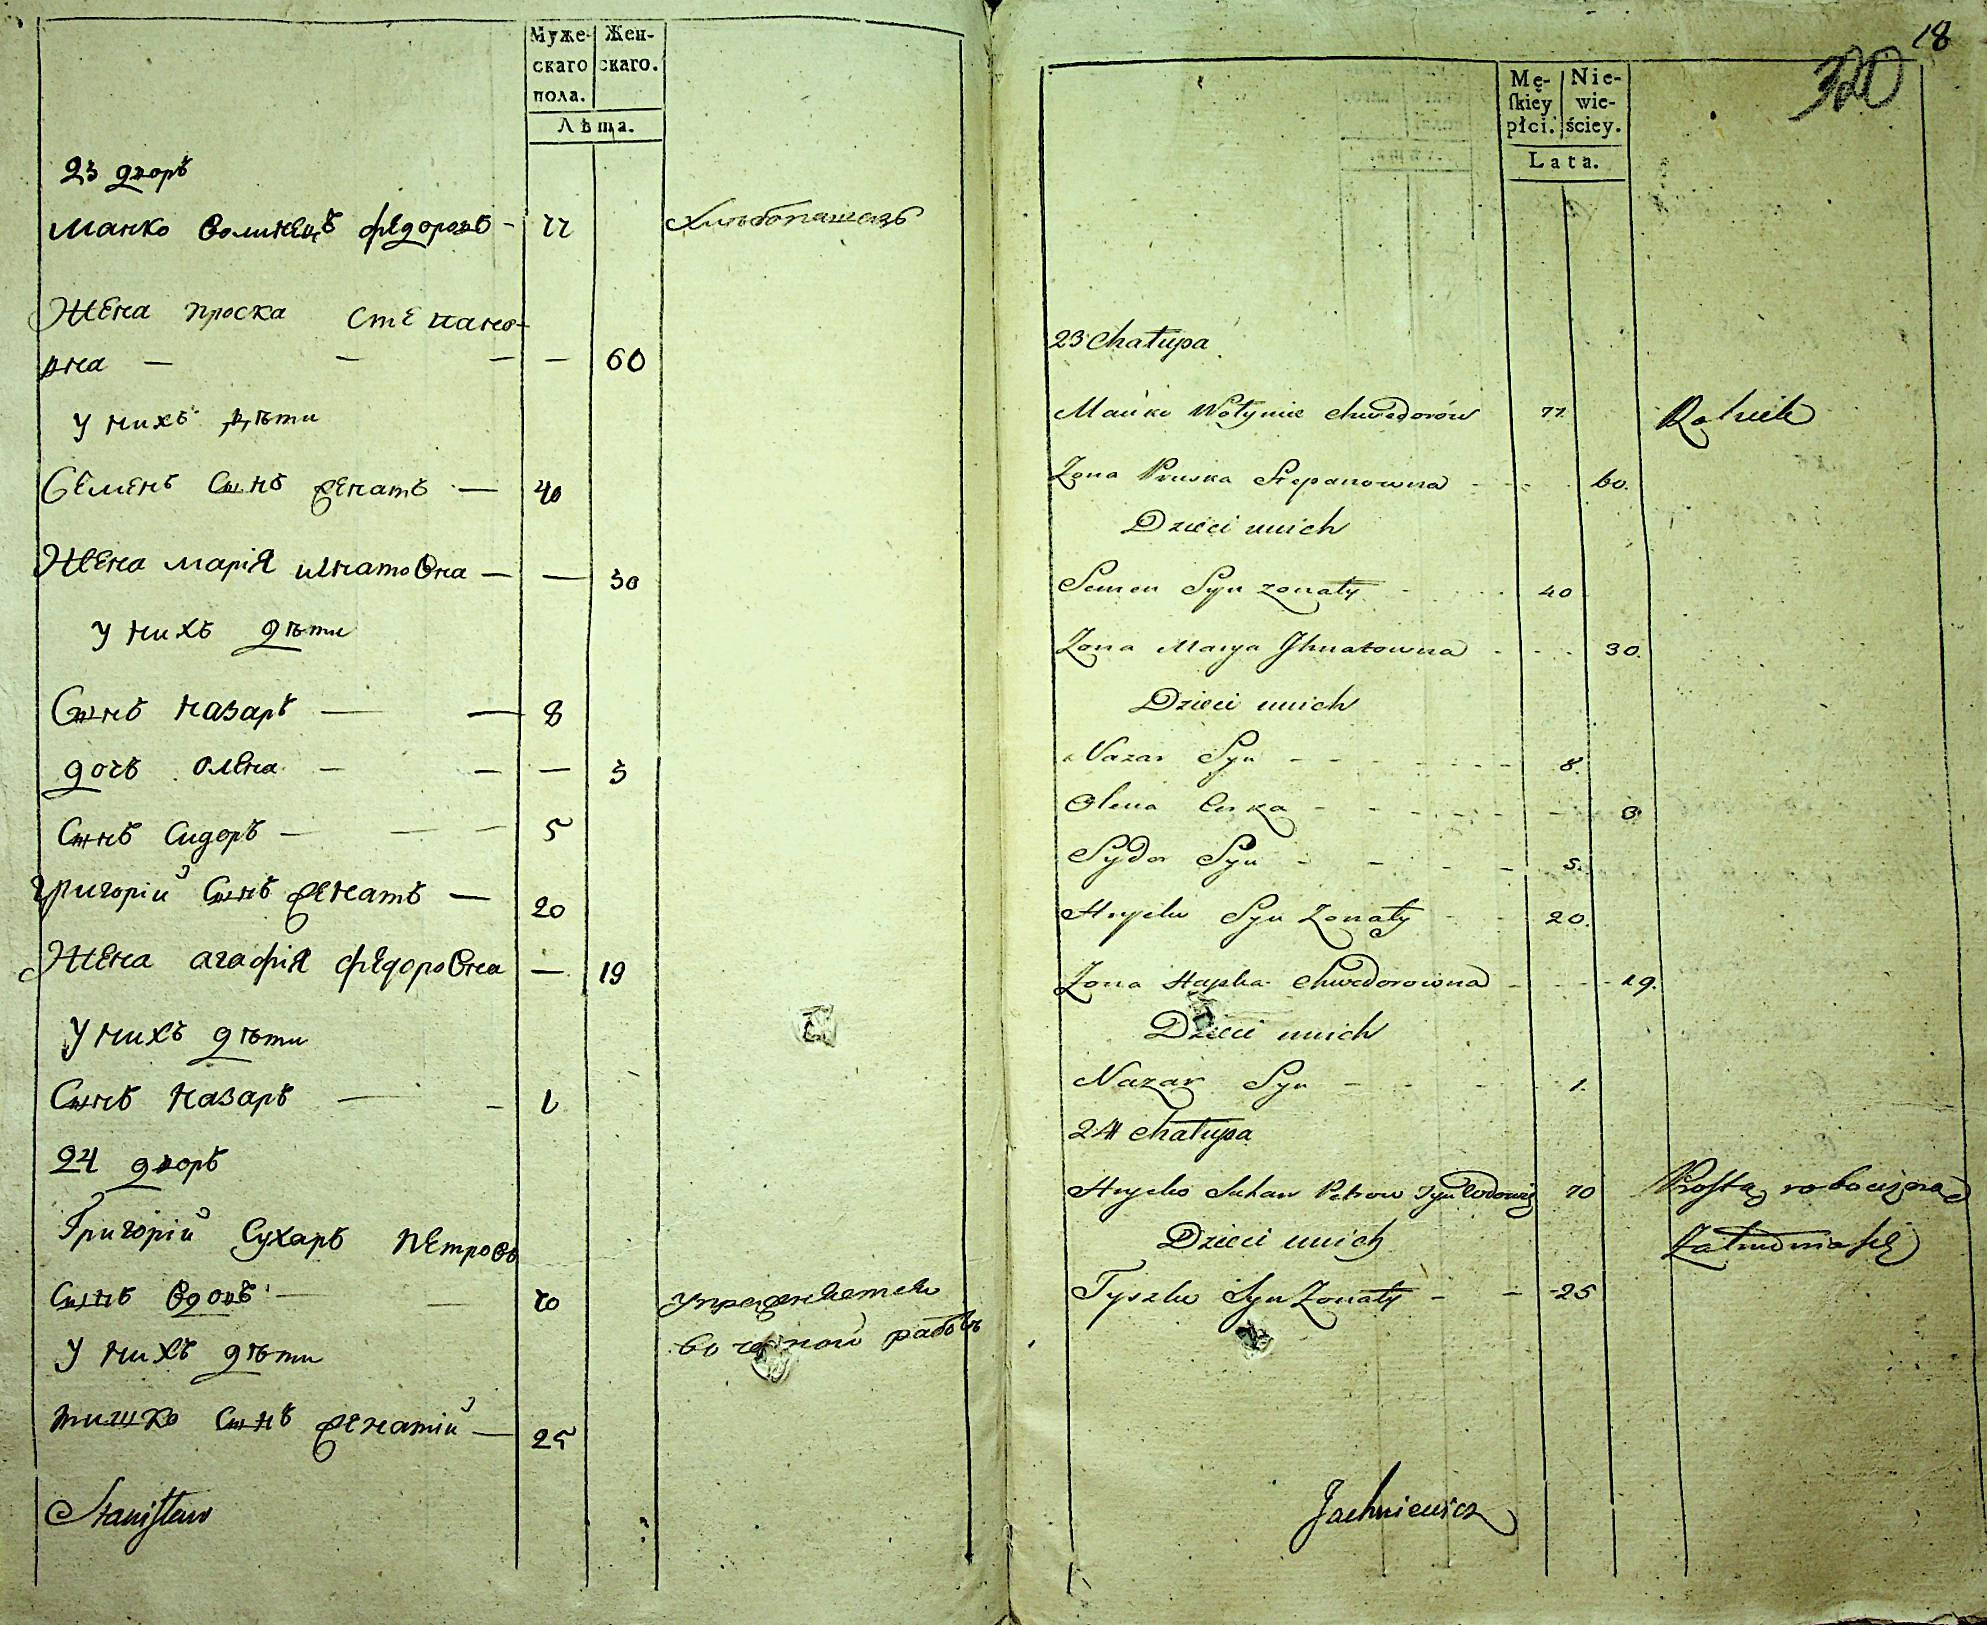 Муже-
скаго
пола.
Жен-
скаго.
Лѣта.
23 дворъ
Манко Волинецъ Федоровъ - 77 Хлѣбопашецъ
Жена Проска Степано-
вна — — — — 60
У нихъ дѣти
Семенъ Сынъ женатъ — 40
Жена Марія Игнатовна — — 30
У нихъ дѣти
Сынъ Назаръ — — 8
дочь Олена — — — 3
Сынъ Сидоръ — — — 5
Григорій Сынъ женатъ — 20
Жена Агафія Федоровна — 19
У нихъ дѣти
Сынъ Назаръ — - 1
24 дворъ
Григорій Сухаръ Петровъ
Сынъ вдовъ — — 70 упражняется
во чорной работѣ
У нихъ дѣти
Тишко Сынъ женатій — 25
Stanisław
18
320
Mę-
ſkiey
płci.
Nie-
wie-
ściey.
Lata.
23 Chałupa
Mańko Wołyniec Chwedorów 77 Rolnik
Zona Pruska Stepanowna - - 60.
Dzieci unich
Semen Syn zonaty - - 40
Zona Marya Ihnatowna - - - 30.
Dzieci unich
Nazar Syn - - - - - - 8.
Olena Curka - - - - - - 3.
Sydor Syn - - - - 5.
Hryćko Syn Zonaty - - 20.
Zona Hapka Chwedorowna - - - 19.
Dzieci unich
Nazar Syn - - - 1.
24 Chałupa
Hryćko Suhar Petrow Syn Wdowiec 70 Prostą robocizną
Dzieci unich Zatrudnia się
Tyszko Syn Zonaty - - 25
Jachniewicz